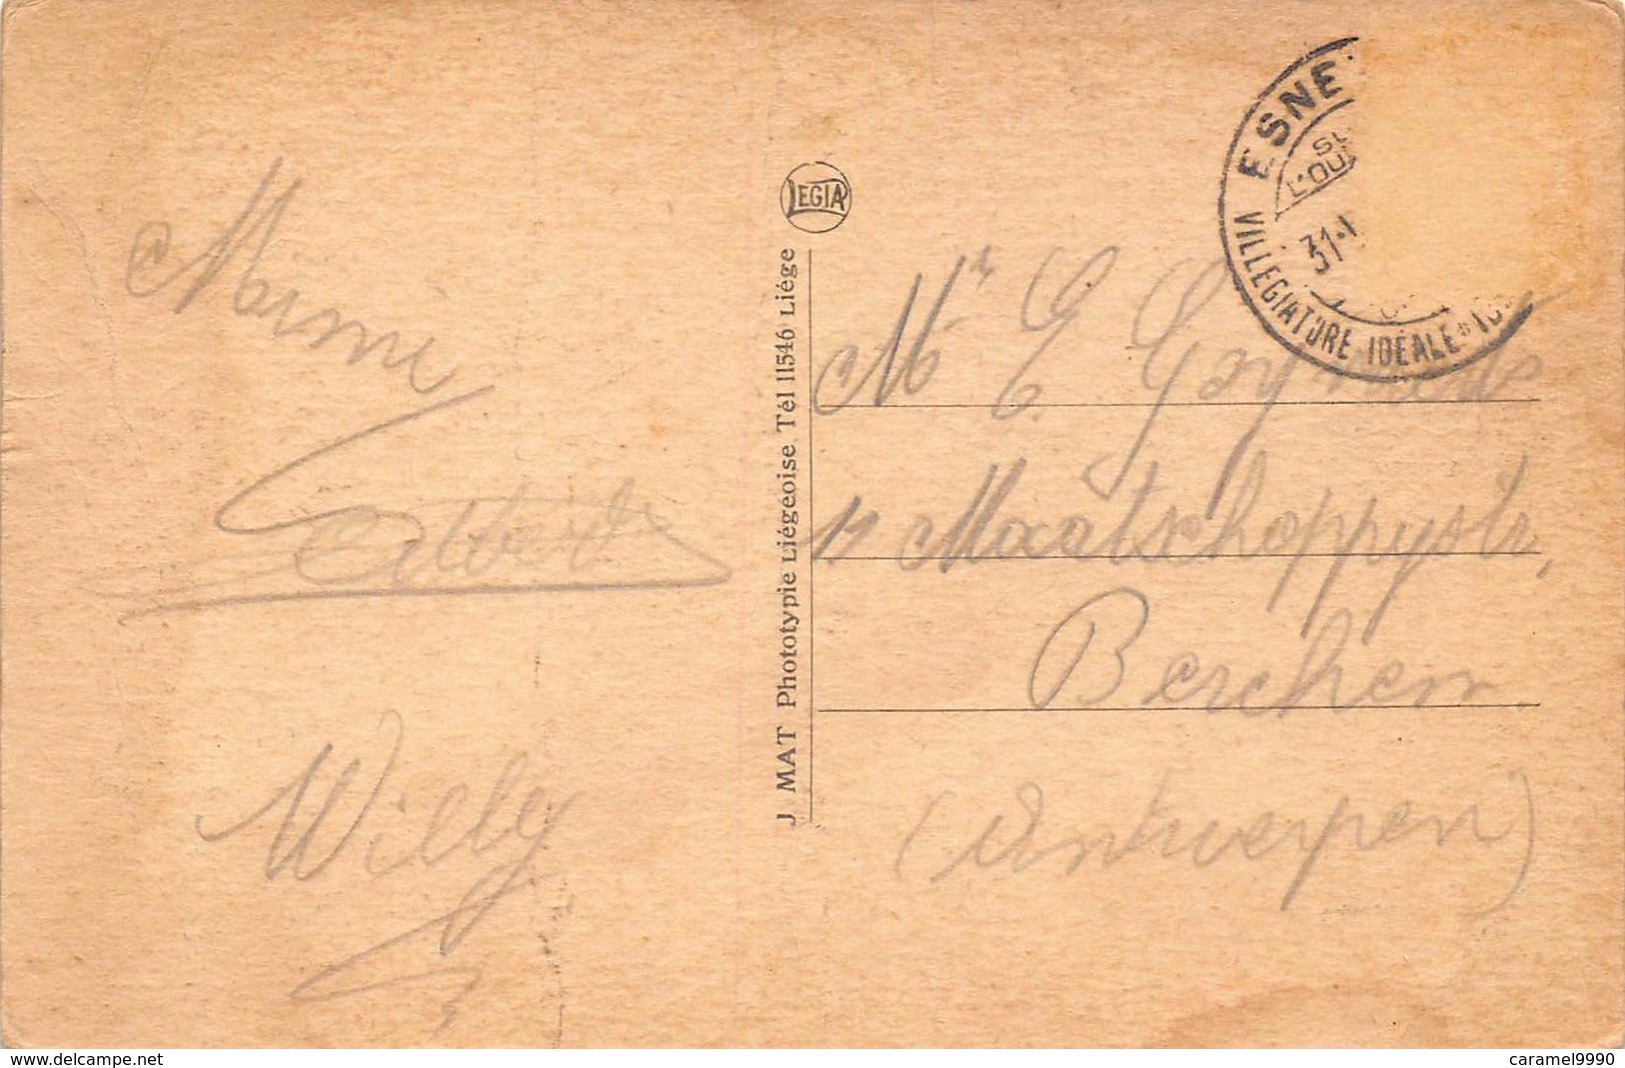 Mimi
Willy
LEGIA
J MAT Phototypie Liégeoise Tél 11546 Liége
ESNE
SU
L'OU
31-
VILLEGIATURE IDEALE
Mr G.
11 Maatschappystr,
Berchem.
(Antwerpen)
www.delcampe.net
caramel9990